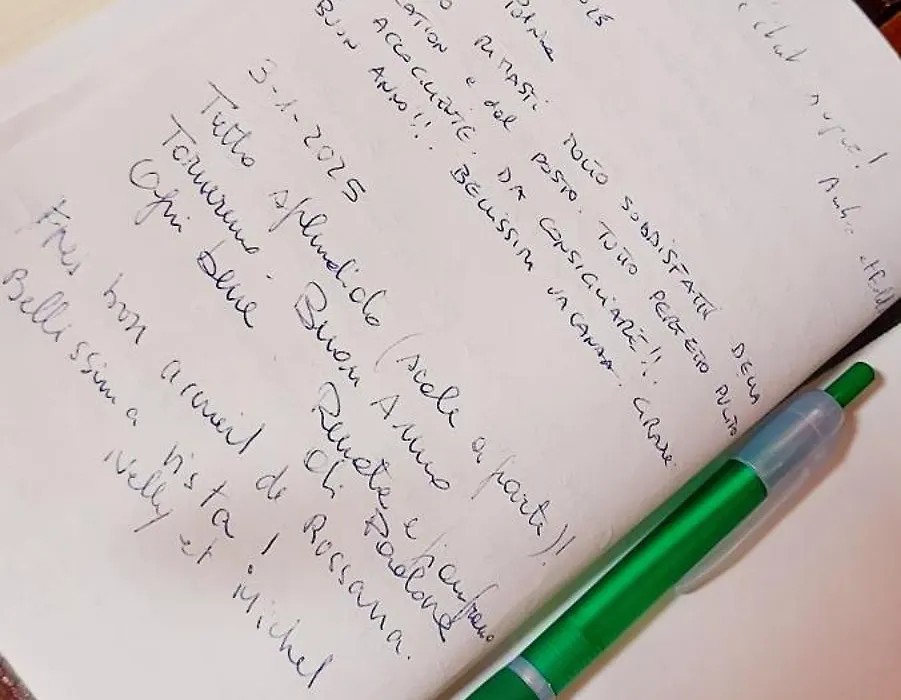 RIMASTI MOLTO SODDISFATTI DELLA
e del POSTO. TUTTO PERFETO PULITO
ACCOGLIENTE. DA CONSIGLIARE!!.
BUON ANNO!! BELLISSIMA VACANZA. GRAZIE
3-1-2025
Tutto splendido (scale a parte)!
Torneremo. Buon Anno
Ogni bene Renata e
di
Très bon accueil de Rossana.
Bellissima vista!
Nelly et Michel